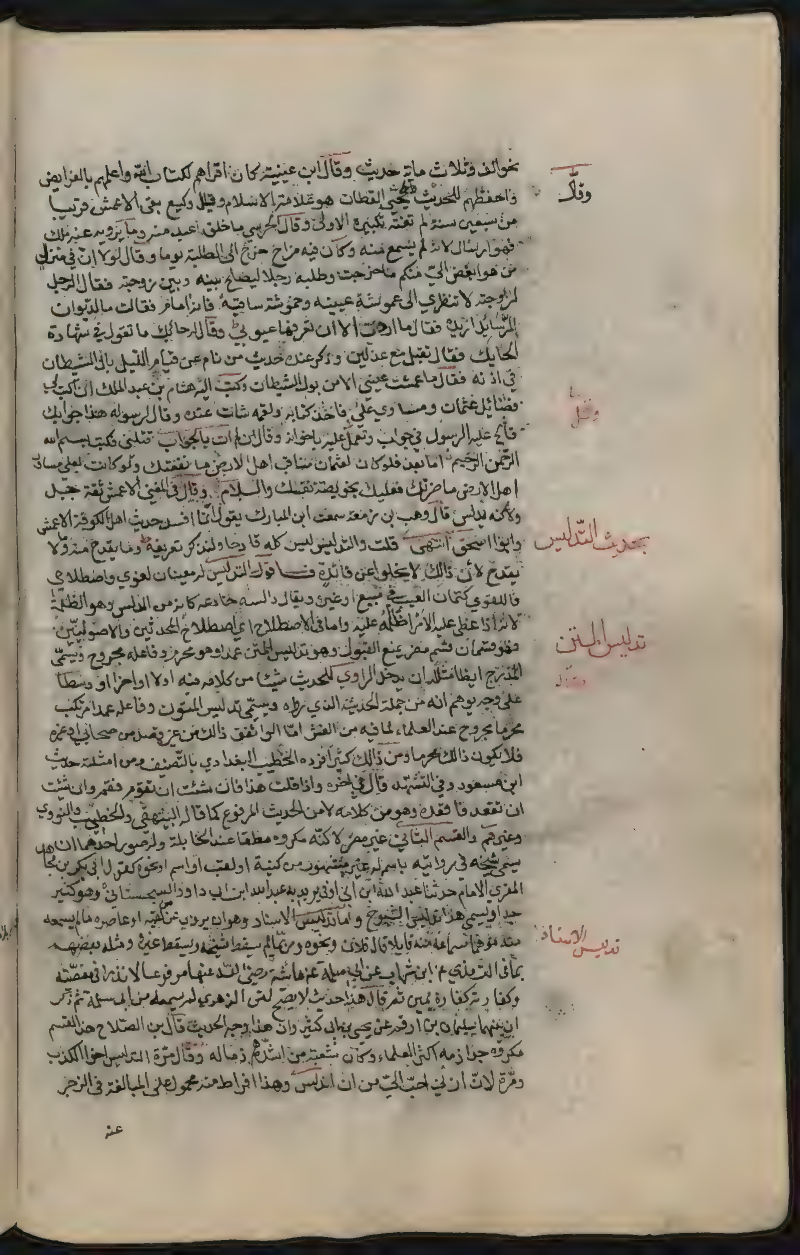 بخوالف وثلاث ماية حديث وقال ابن عيينة كان اقراهم لكتاب الله واعلمهم بالفرايض
واحفظهم للحديث يحيى القطان هو علامة الاسلام وقيل وكيع بقى الاعمش قريبا
من سبعين سنة لم تفته تكبيرة الاولى وقال الخريبي ما خلق اعبد منه وما يرويه عنه
فهو ارسال لانه لم يسمع منه وكان فيه مزاح خرج الى الطلبة يوما وقال لولا ان في منزلي
من هو ابغض الي منكم ما خرجت وطلبه رجلا ليصلح بينه وبين زوجته فقال الرجل
لزوجته لا تنظري الى عموشة عينيه وحموشة ساقيه فانه امام فقالت ما لديوان
الرسايل اريده فقال ما اردت الا ان تعرفها عيوبي وقال له حايك ما تقول في شهادة
الحايك فقال تقبل مع عدلين وذكر عنده حديث من نام عن قيام الليل بال الشيطان
في اذنه فقال ما عمشت عيني الا من بول الشيطان وكتب اليه هشام بن عبد الملك ان اكتب لي
فضائل عثمان ومساوي علي فاخذ كتابه ولقمه شاة عنده وقال لرسوله هذا جوابك
فالح عليه الرسول في جواب وتحمل عليه باخوانه وقال ان لم ات بالجواب قتلني فكتب بسم الله
الرحمن الرحيم اما بعد فلو كان لعثمان مناقب اهل الارض ما نفعتك ولو كانت لعلي مساوي
اهل الارض ما ضرتك فعليك بخويصة نفسك والسلام وقال في المغني الاعمش ثقة جبل
ولكنه يدلس قال وهب بن زمعة سمعت ابن المبارك يقول انما افسد حديث اهل الكوفة الاعمش
وابو اسحق انتهى قلت والتدليس ليس كله قادحا ولنذكر تعريفه وما يقدح منه ولا
يقدح لان ذلك لا يخلوا عن فائدة فاقول التدليس له معنيان لغوي واصطلاحي
فاللغوي كتمان العيب في مبيع او غيره ويقال دالسه خادعه كانه من الدلس وهو الظلمة
لانه اذا غطى عليه الامر اظلمه عليه واما في الاصطلاح اي اصطلاح المحدثين والاصوليين
فهو قسمان قسم مضر يمنع القبول وهو تدليس المتن عمدا وهو محرم وفاعله مجروح ويسمى
المدرج ايضا مثاله ان يدخل الراوي للحديث شيئا من كلامه فيه اولا او اخرا او وسطا
على وجه يوهم انه من جملة الحديث الذي رواه ويسمى تدليس المتون وفاعله عمدا مرتكب
محرما مجروح عند العلماء لما فيه من الغش اما لو اتفق ذالك من غير قصد من صحابي او غيره
فلا يكون ذالك محرما ومن ذالك كثير افرده الخطيب البغدادي بالتصنيف ومن امثلته حديث
ابن مسعود في التشهد قال في اخره واذا قلت هذا فان شئت ان تقوم فقم وان شئت
ان تقعد فاقعد وهو من كلامه لا من الحديث المرفوع كما قاله البيهقي والخطيب والنووي
وغيرهم والقسم الثاني غير مضر لاكنه مكروه مطلقا عند الحنابلة وله صور احدها ان
يسمى شيخه في روايته باسم له غير مشهور من كنية او لقب او اسم او نحوه كقول ابي بكر بن مجاهد
المقري الامام حدثنا عبد الله ابن ابي اوفى يريد به عبد الله ابن ابي داود السجستاني وهو كثير
جدا ويسمى هذا تدليس الشيوخ واما تدليس الاسناد وهو ان يروي عن لقيه او عاصره ما لم يسمعه
منه موهما سماعه منه قايلا قال فلان ونحوه وربما لم يسقط شيخه ويسقط غيره ومثله بعضهم
بما في الترمذي عن ابن شهاب عن ابي سلمة عن عائشة رضي الله عنها مرفوعا لا نذر في معصية
وكفارته كفارة يمين ثم قال هذا حديث لا يصح لان الزهري لم يسمعه من ابي سلمة ثم ذكر
ان بينهما سليمان بن ارقم عن يحيى بن ابي كثير وان هذا وجه الحديث قال بن الصلاح هذا القسم
مكروه جدا ذمه اكثر العلماء وكان شعبة من اشدهم ذما له وقال مرة التدليس اخو الكذب
ومرة لان ازني احب الي من ان ادلس وهذا افراط منه محمول على المبالغة في الزجر
عنه
وقال
وقيل
بحديث التدليس
تدليس المتن
تدليس الاسناد